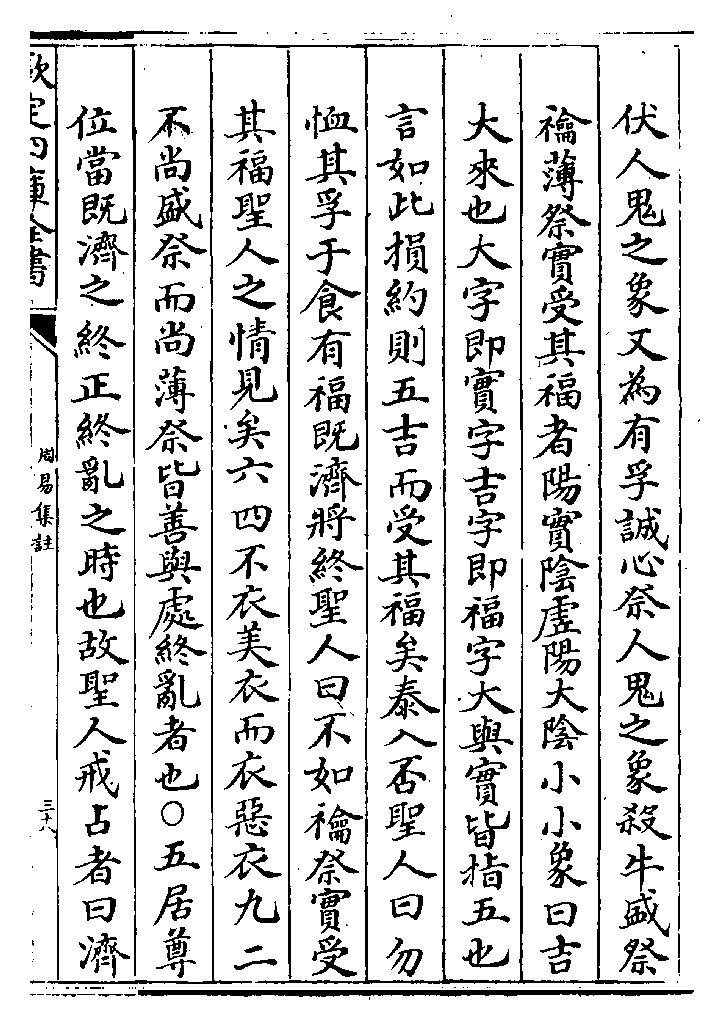 伏人鬼之象又為有孚誠心祭人鬼之象殺牛盛祭
禴薄祭實受其福者陽實陰虛陽大陰小小象曰吉
大來也大字即實字吉字即福字大與實皆指五也
言如此損約則五吉而受其福矣泰入否聖人曰勿
恤其孚于食有福既濟將終聖人曰不如禴祭實受
其福聖人之情見矣六四不衣美衣而衣惡衣九二
不尚盛祭而尚薄祭皆善與處終亂者也○五居尊
位當既濟之終正終亂之時也故聖人戒占者曰濟
欽定四庫全書
周易集註
三十八